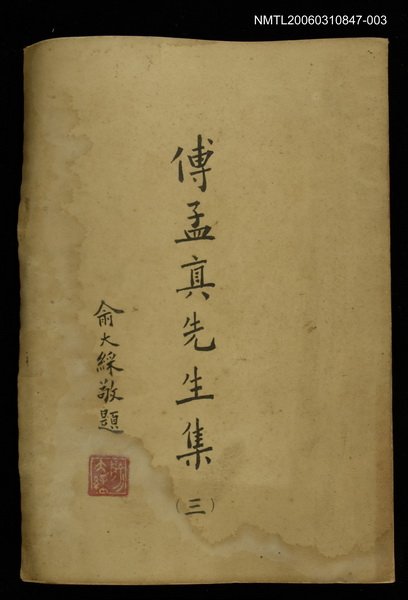 NMTL20060310847-003
傅孟真先生集
(三)
俞大綵敬題